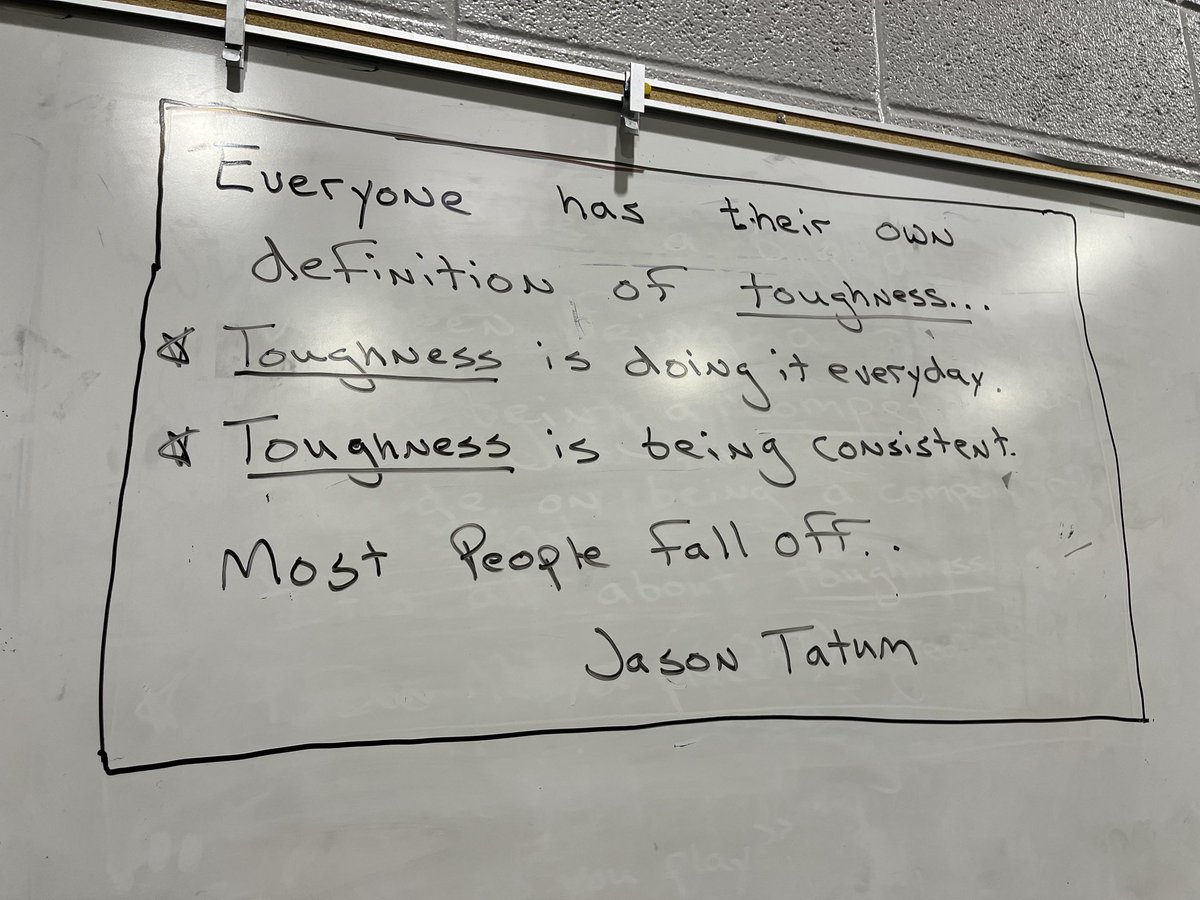 Everyone has their own
definition of toughness...
☆ Toughness is doing it everyday.
☆ Toughness is being consistent.
Most People fall off..
Jason Tatum
a compe
about toughness
you play"